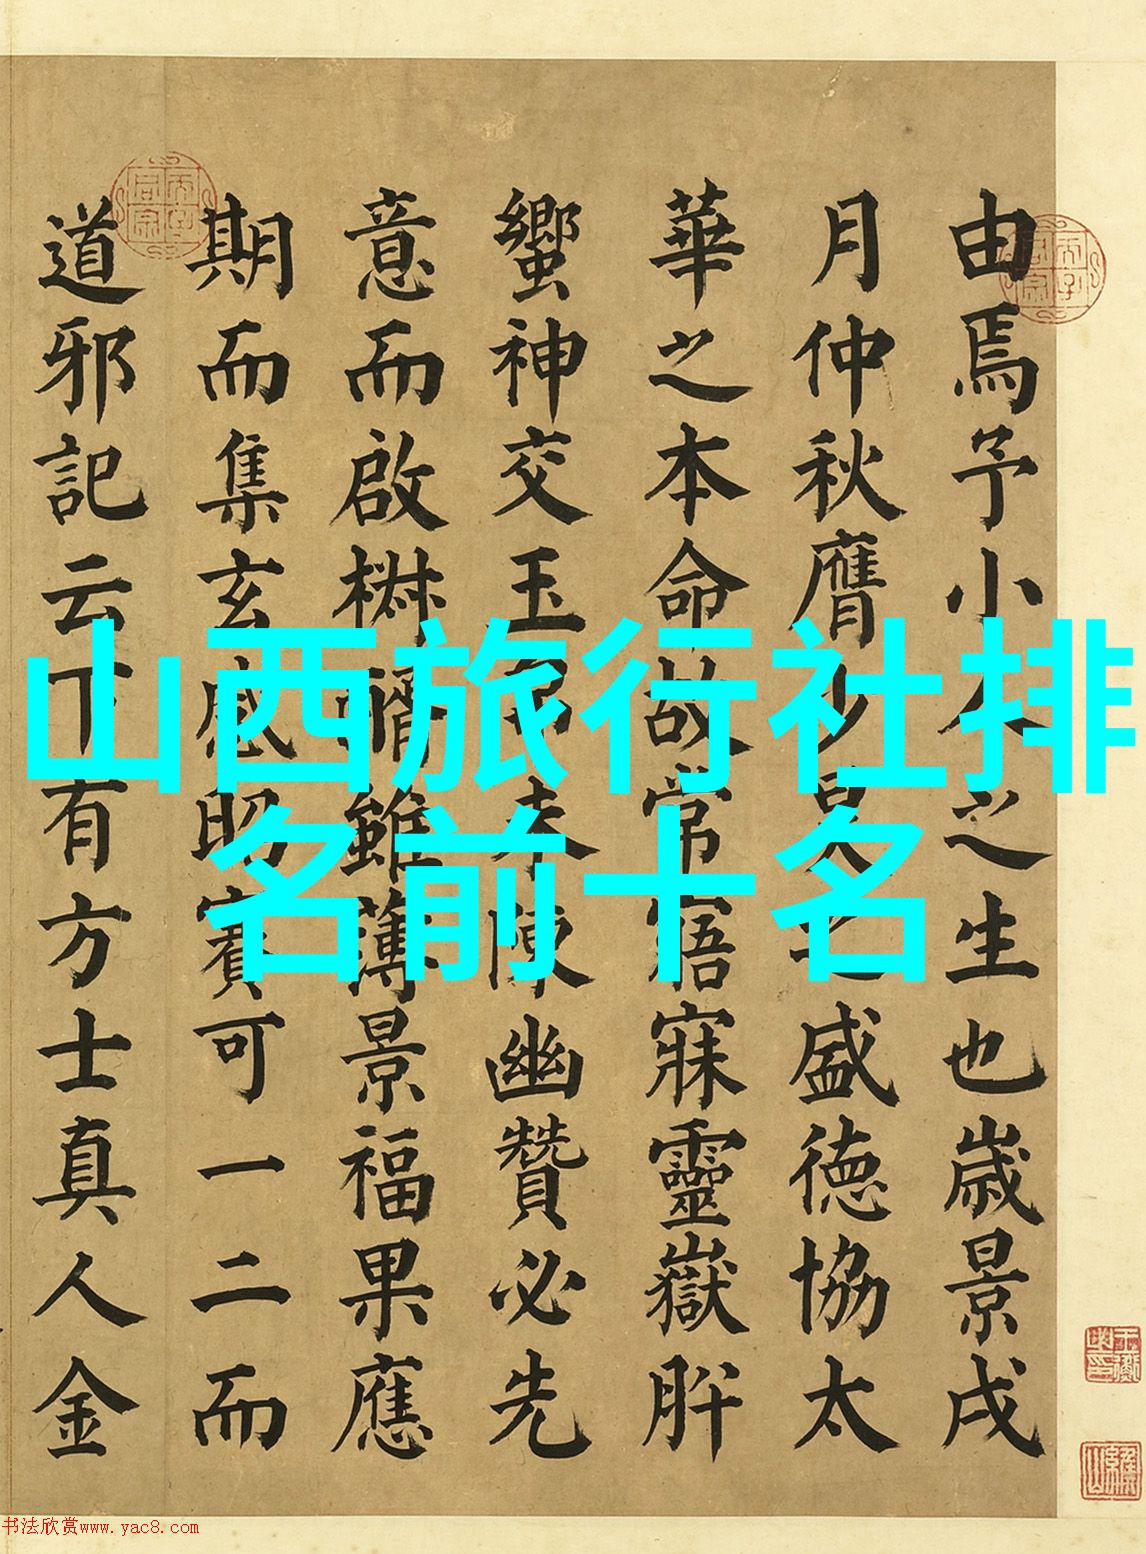 山西旅行社排
名前十名
由焉予小人之生也歲景戌
月仲秋膺少昊之盛德協太
華之本命故常寤寐靈嶽肸
蠁神交玉帛未陳幽贊必先
意而啟雖薄景福果應
期而集玄感昭賓可一二而
道邪記云下有方士真人金
书法欣赏www.yac8.com